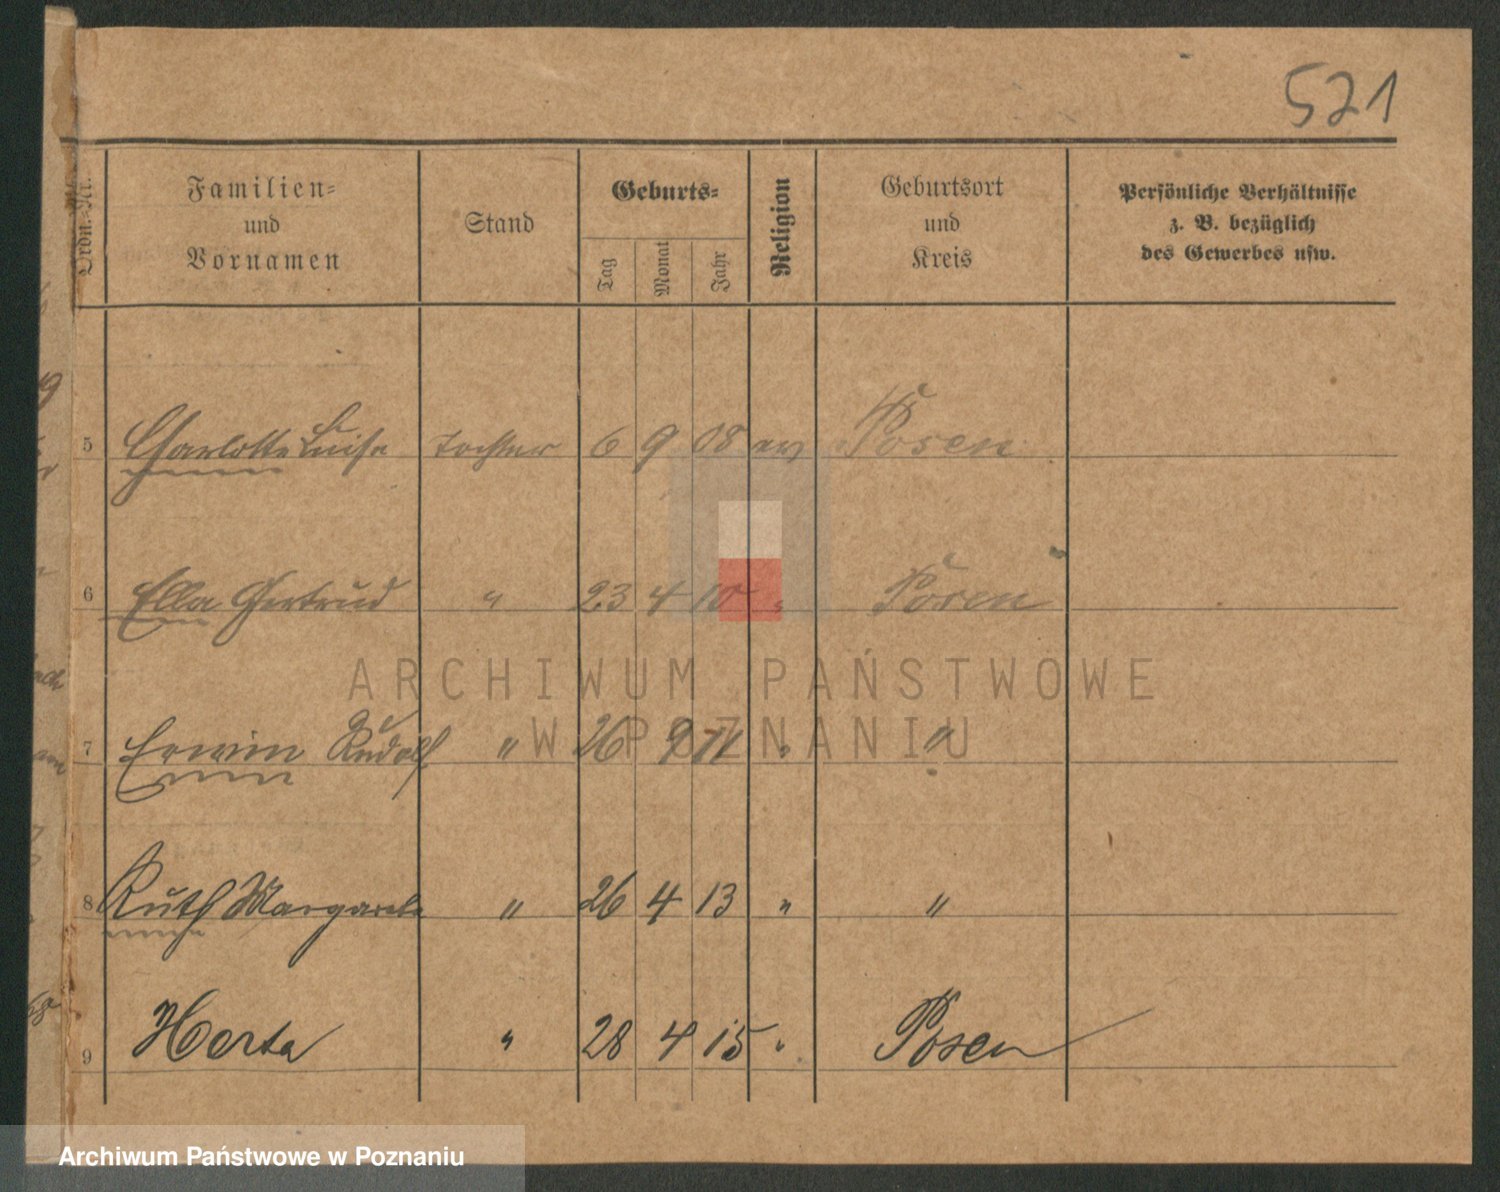 521
Ordn.-Nr.
Familien-
und
Vornamen
Stand
Geburts-
Tag
Monat
Jahr
Religion
Geburtsort
und
Kreis
Persönliche Verhältnisse
z. B. bezüglich
des Gewerbes usw.
5 Charlotte Luise Tochter 6 9 08 ev Posen
6 Ella Gertrud " 23 4 10 " Posen
ARCHIWUM PAŃSTWOWE
W POZNANIU
7 Erwin Rudolf " 26 9 11 " "
8 Ruth Margarete " 26 4 13 " "
9 Herta " 28 4 15 " Posen
Archiwum Państwowe w Poznaniu